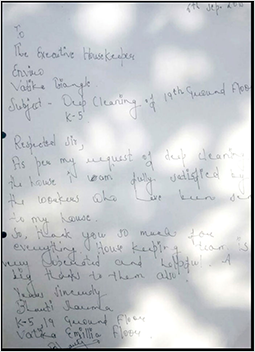 6th Sep. 20
To
The Executive Housekeeper
Enviro
Vatika Triangle
Subject - Deep Cleaning of 19th Ground Floor
K-5
Respected Sir,
As per my request of deep cleaning
the house i am fully satisfied by
the workers who have been
to my house.
So, thank you so much for
everything. House keeping team is
very and helpful. A
big thanks to them also!
Yours Sincerely
K-5/19 Ground Floor
Vatika Emillia Floors.